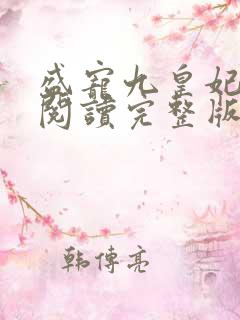 盛寵九皇妃
閱讀完整版
韩傳亮